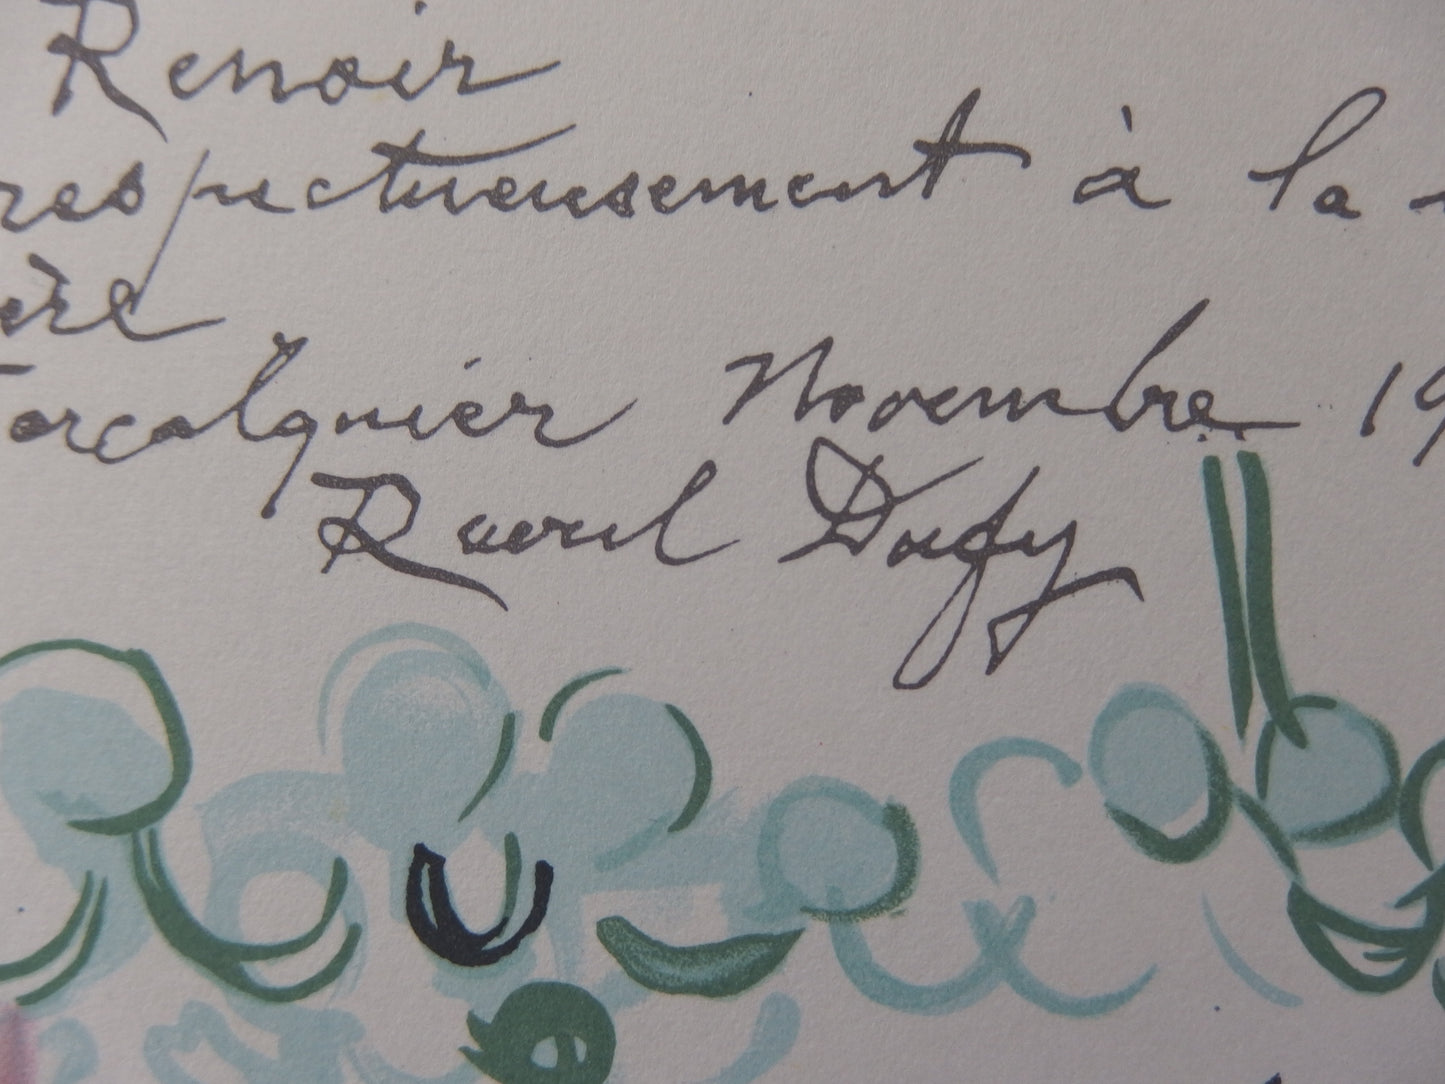 Renoir
respectueusement à la
ère
orcalquier Novembre 19
Raoul Dufy